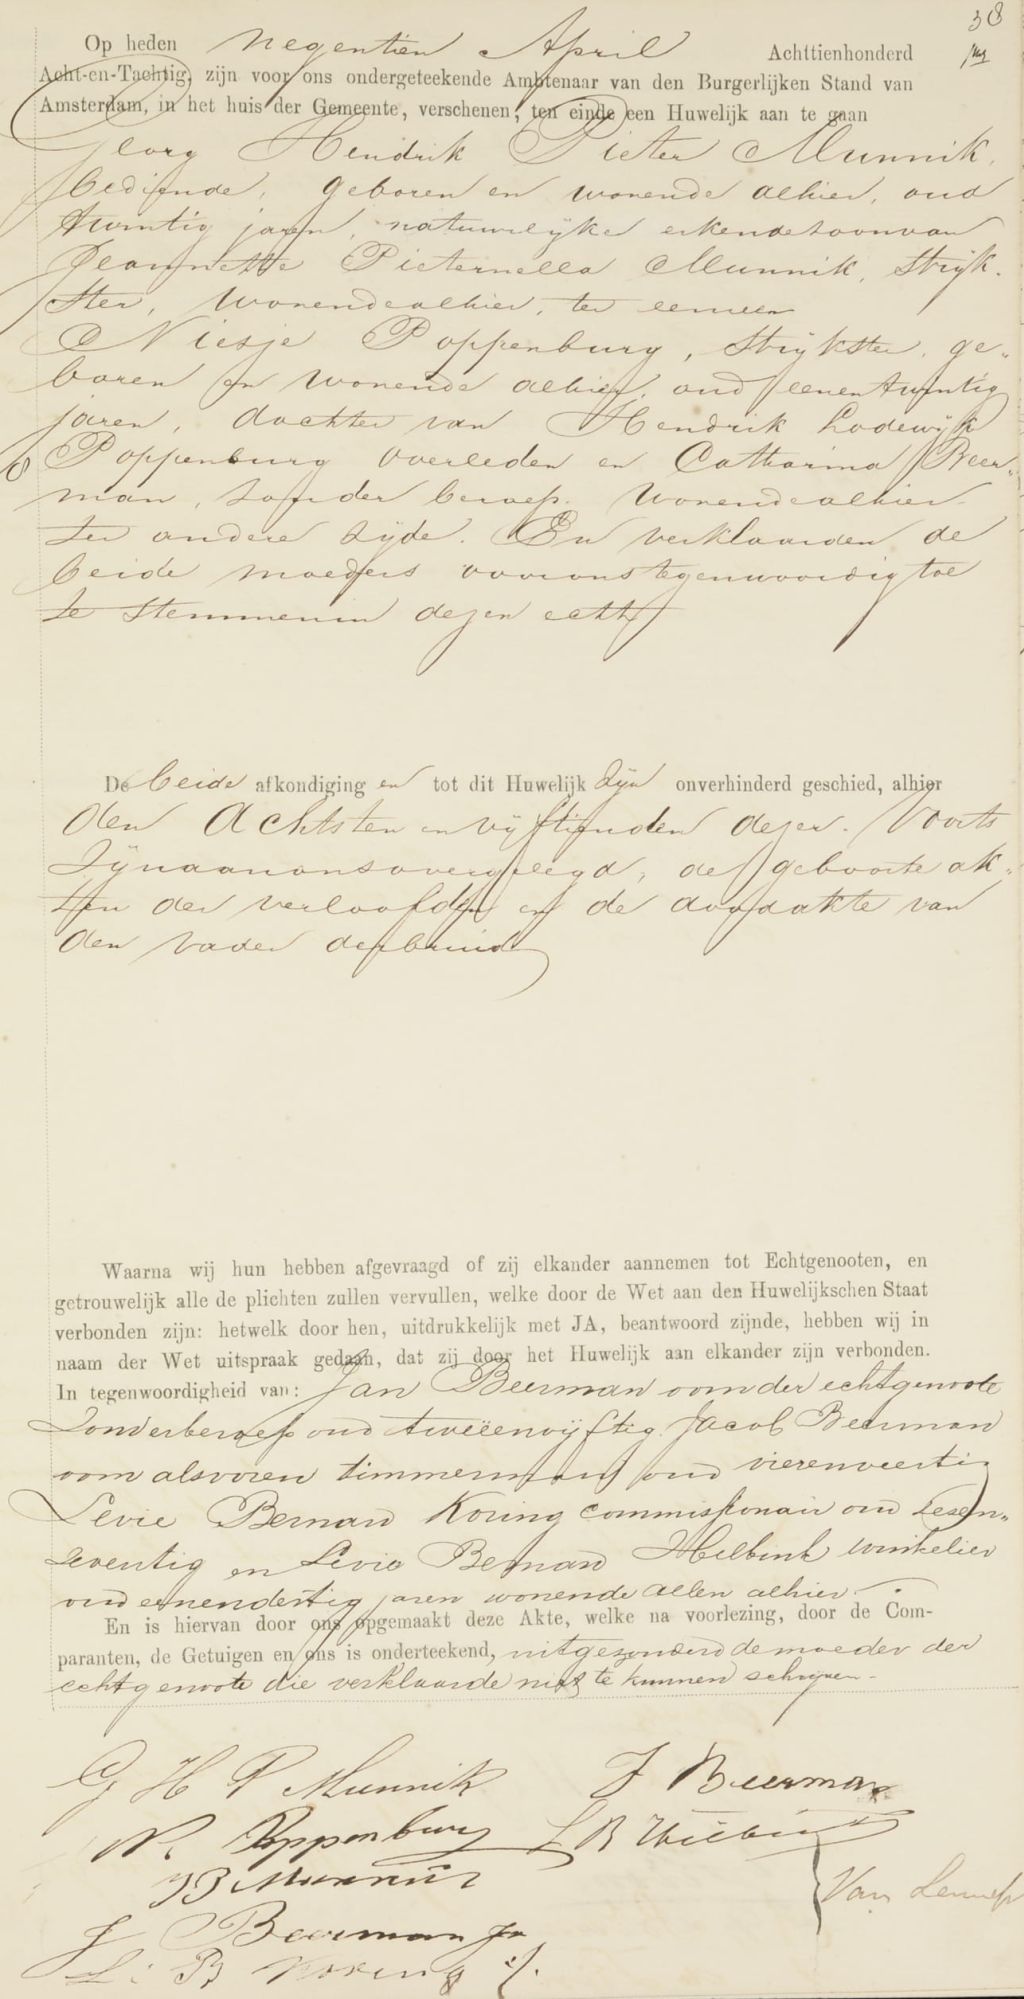 38
Op heden negentien April Achttienhonderd
Acht-en-Tachtig, zijn voor ons ondergeteekende Ambtenaar van den Burgerlijken Stand van
Amsterdam, in het huis der Gemeente, verschenen, ten einde een Huwelijk aan te gaan
Georg Hendrik Pieter Munnik,
bediende, geboren en wonende alhier, oud
twintig jaren, natuurlijke erkende zoon van
Jeannette Pieternella Munnik, strijk-
ster, wonende alhier, ter eener en
Niesje Poppenburg, strijkster, ge-
boren en wonende alhier, oud eenentwintig
jaren, dochter van Hendrik Lodewijk
Poppenburg overleden en Catharina Beer-
man, zonder beroep, wonende alhier
ter andere zijde. En verklaarden de
beide moeders voor ons tegenwoordig toe
te stemmen in dezen echt
De beide afkondiging en tot dit Huwelijk zijn onverhinderd geschied, alhier
den Achtsten en vijftienden dezer. Voorts
zijn aan ons overgelegd, de geboorte ak-
ten der verloofden en de doodakte van
den vader der bruid
Waarna wij hun hebben afgevraagd of zij elkander aannemen tot Echtgenooten, en
getrouwelijk alle de plichten zullen vervullen, welke door de Wet aan den Huwelijkschen Staat
verbonden zijn: hetwelk door hen, uitdrukkelijk met JA, beantwoord zijnde, hebben wij in
naam der Wet uitspraak gedaan, dat zij door het Huwelijk aan elkander zijn verbonden.
In tegenwoordigheid van: Jan Beerman oom der echtgenoote
zonder beroep oud tweeenvijftig Jacob Beerman
oom als voren timmerman oud vierenveertig
Levie Bernard Koring commissionair oud zesen-
zeventig en Levie Bernard Helbink winkelier
oud eenendertig jaren wonende allen alhier.
En is hiervan door ons opgemaakt deze Akte, welke na voorlezing, door de Com-
paranten, de Getuigen en ons is onderteekend, uitgezonderd de moeder der
echtgenoote die verklaarde niet te kunnen schrijven.
G H P Munnik J Beerman
N. Poppenburg L B
J P Munnik
Van Lennep
J Beerman Jz
L. B Koring